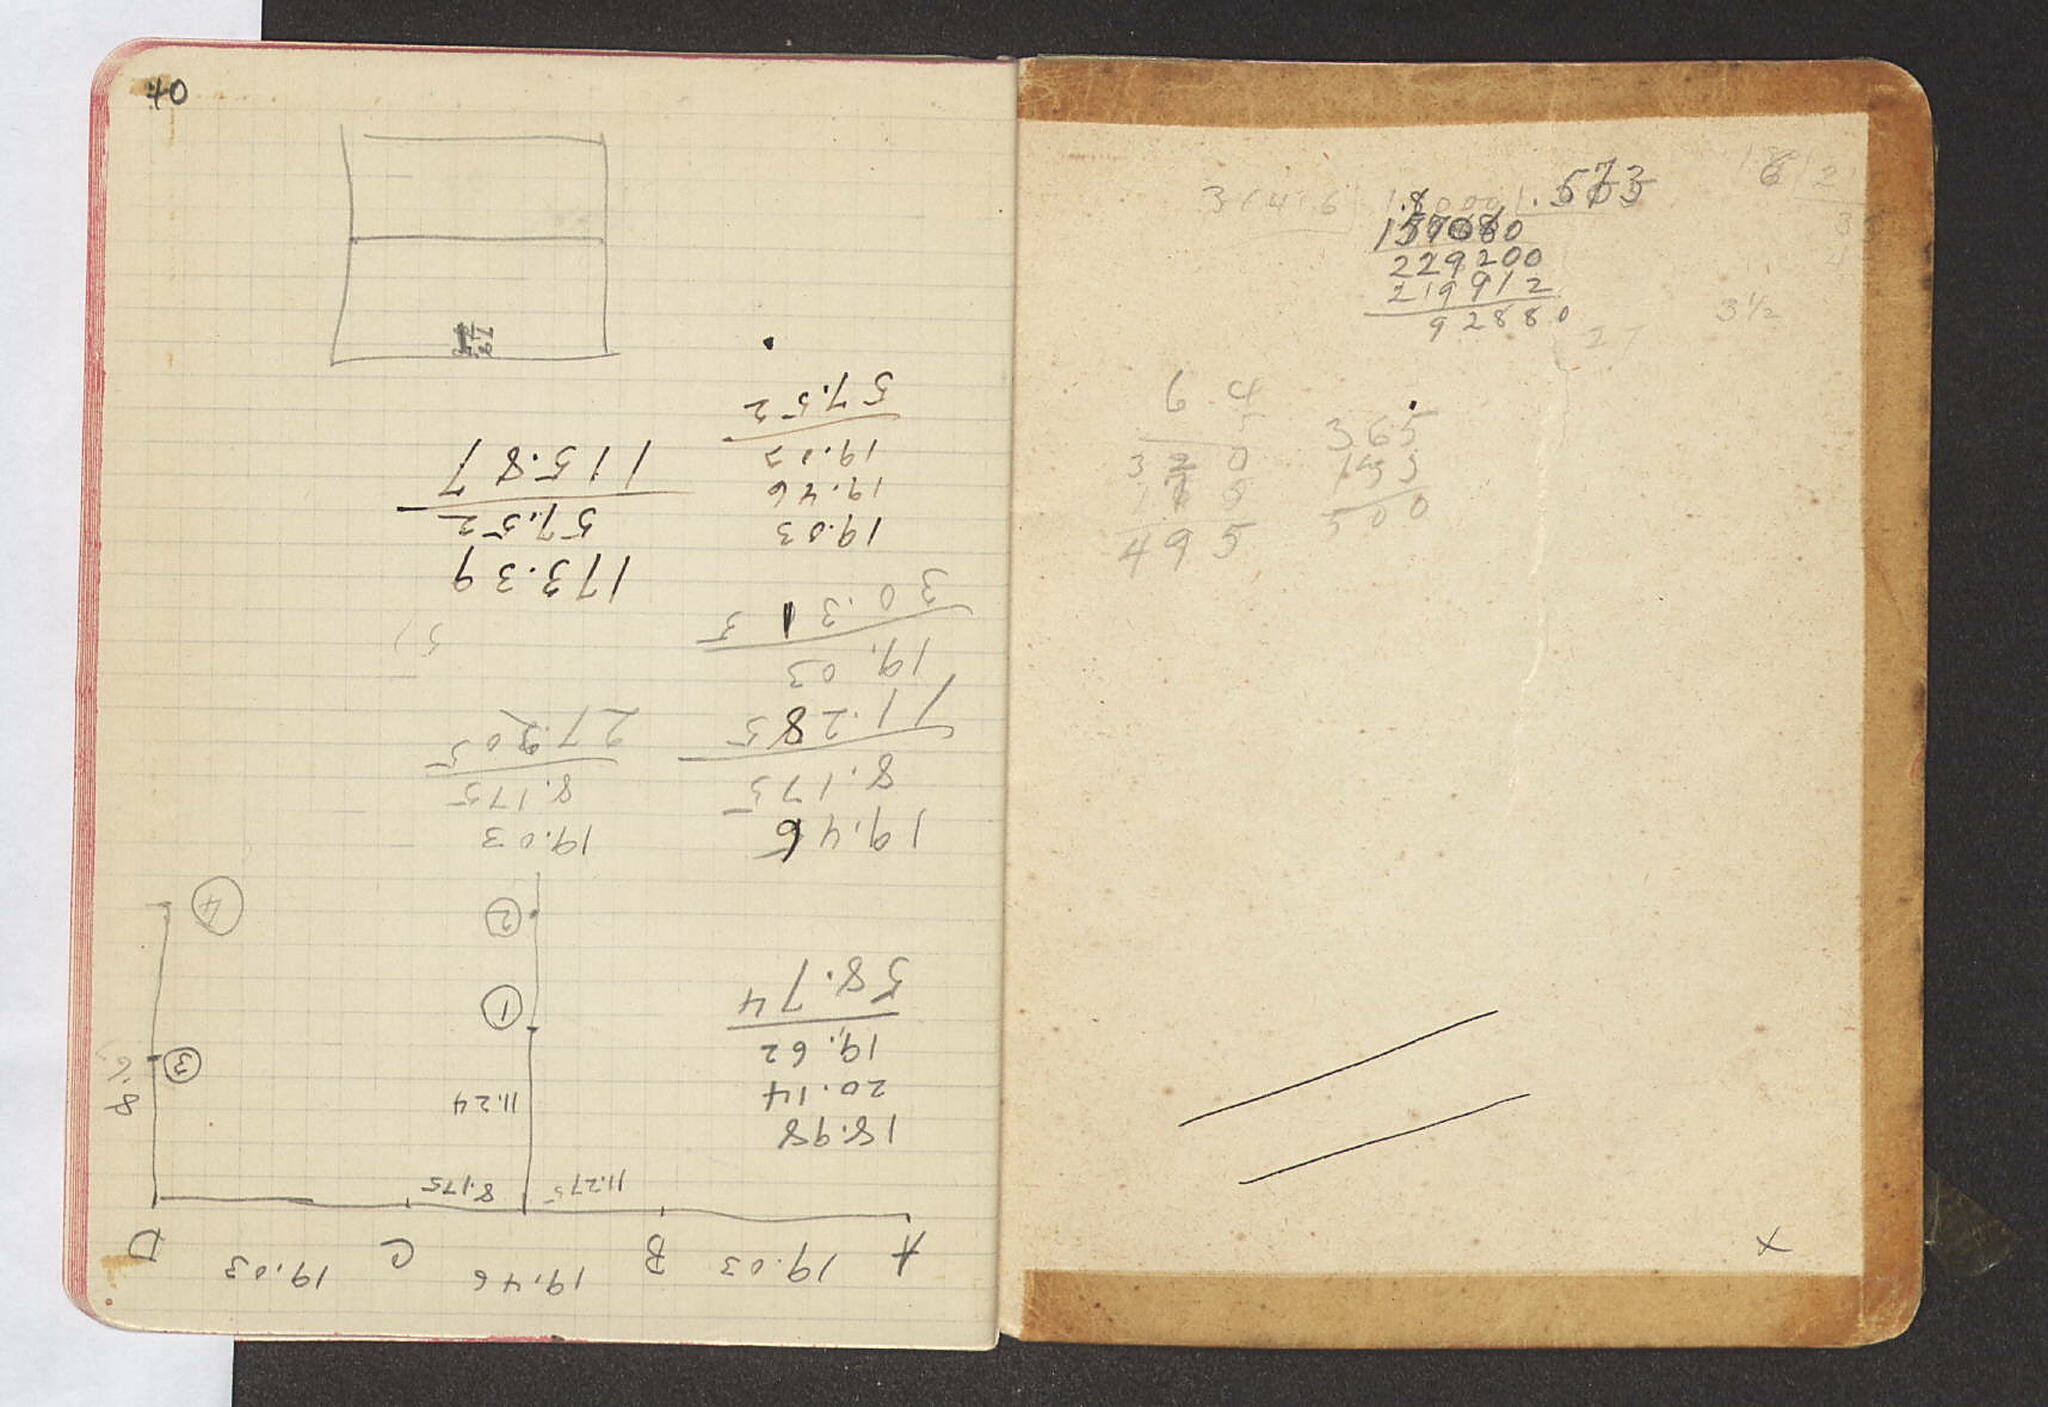 40
A 19.03 B 19.46 C 19.03 D
11.275 8.175
11.24
1
2
3
4
18.98
20.14
19.62
58.74
19.46
8.175
71.285
19.03
30.315
19.03
8.175
27.205
19.03
19.46
19.03
57.52
173.39
57.52
115.87
3.1416 1.80000 .573
157080
229200
219912
92880
3 1/2
27
64
5
320
495
365
135
500
x